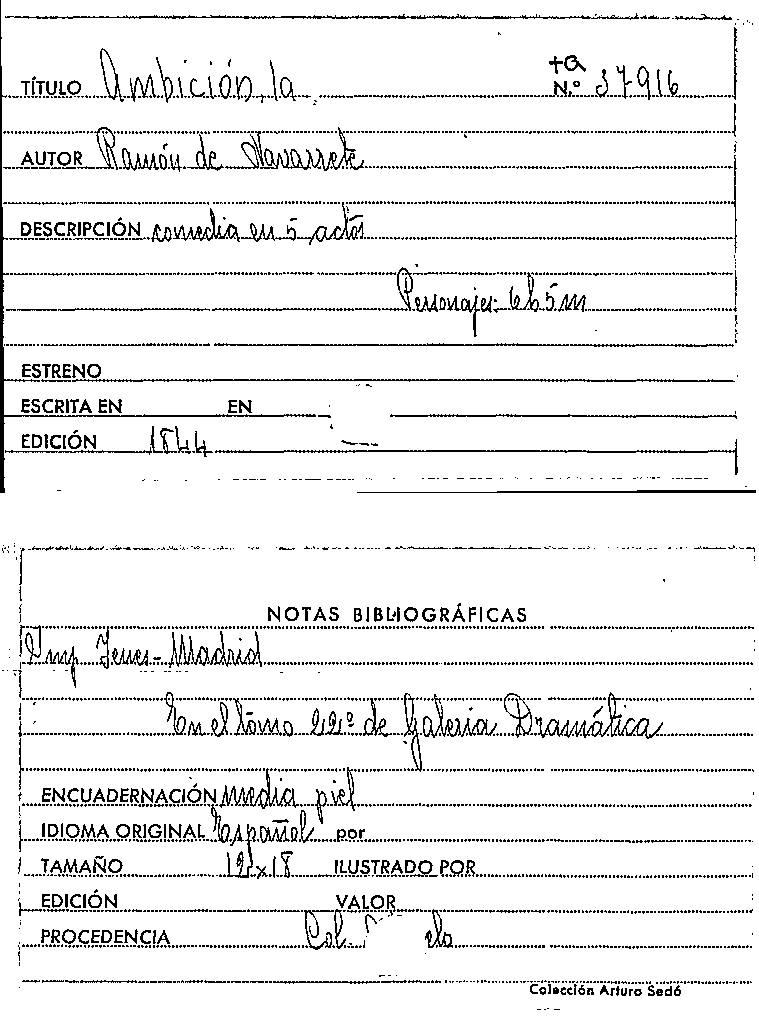 TÍTULO Ambición, la
+a
N.º 37916
AUTOR Ramón de Navarrete
DESCRIPCIÓN comedia en 5 actos
Personajes: 6h 5m
ESTRENO
ESCRITA EN EN
EDICIÓN 1844
NOTAS BIBLIOGRÁFICAS
Imp Yenes - Madrid
En el tomo 22º de Galeria Dramática
ENCUADERNACIÓN media piel
IDIOMA ORIGINAL Español por
TAMAÑO 12x18 ILUSTRADO POR
EDICIÓN VALOR
PROCEDENCIA Col.
Colección Arturo Sedó